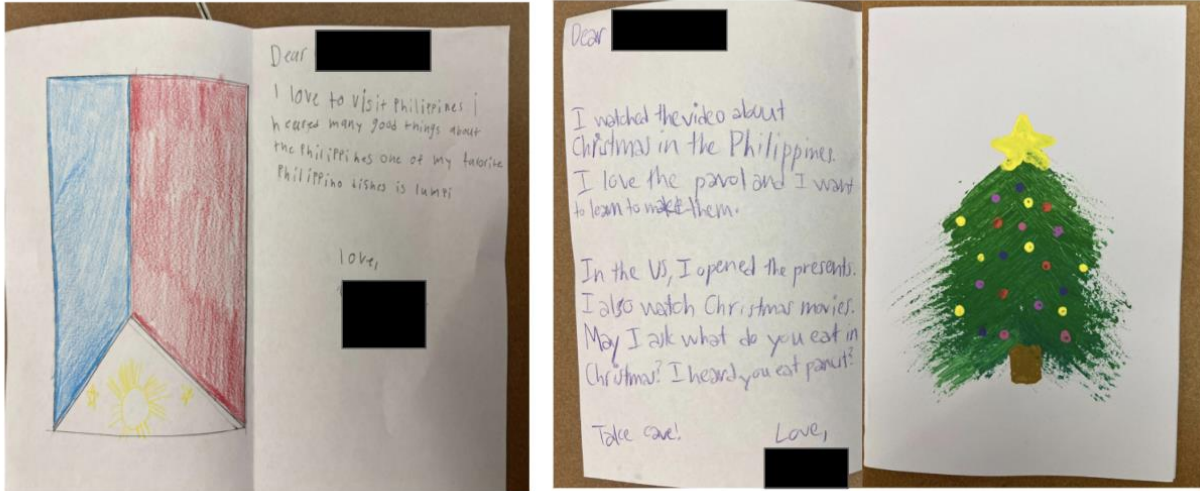 Dear
I love to visit Philippines i
heared many good things about
the Philippines one of my favorite
Philippino Dishes is lumpi
love,
Dear
I watched the video about
Christmas in the Philippines.
I love the parol and I want
to learn to make them.
In the US, I opened the presents.
I also watch Christmas movies.
May I ask what do you eat in
Christmas? I heard you eat panut?
Take care!
Love,